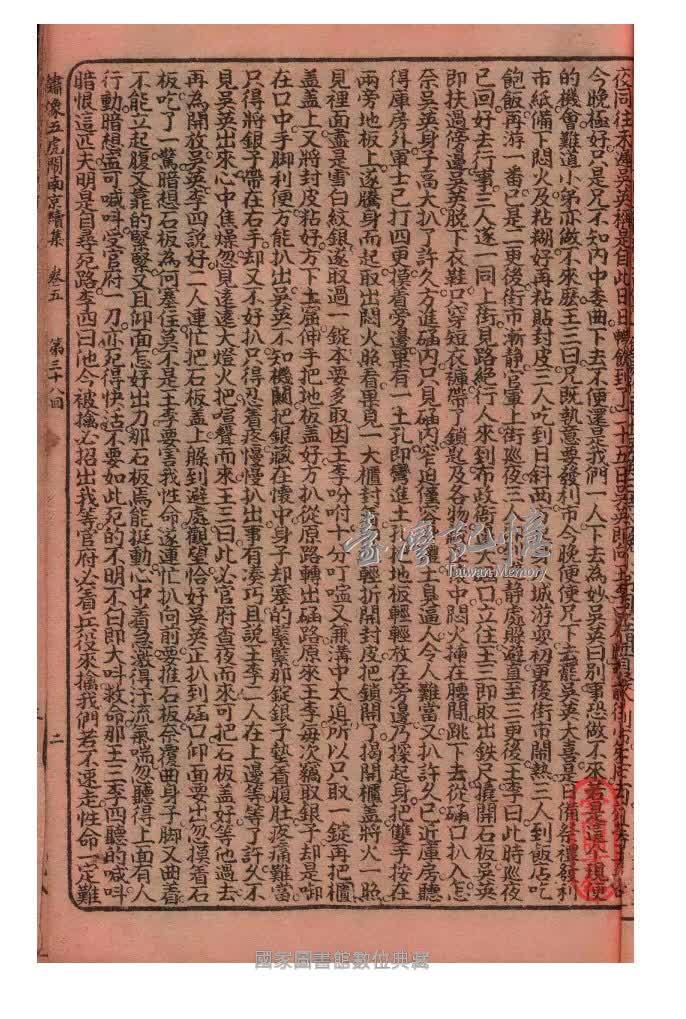 今晚極好只是兄不知內中委曲下去不便還是我們一人下去為妙吳英曰別事恐做不來若是這現便
的機會難道小弟亦做不來麼王三曰兄既執意要發利市今晚便使兄下去罷吳英大喜是日備祭禮發利
市紙備下悶火及粘糊好再粘貼封皮三人吃到日斜西 城游耍初更後街市鬧熱三人到飯店吃
飽飯再游一番已是二更後街市漸靜官軍上街巡夜三人 靜處躲避直至三更後王李曰此時巡夜
已回好去行事三人遂一同上街見路絕行人來到布政衙 口立住王三即取出鉄尺撓開石板吳英
即扶過傍邊吳英脫下衣鞋只穿短衣褲帶了鎖匙及各物 中悶火揷在腰間跳下去從𥕢口扒入怎
奈吳英身子高大扒了許久方進𥕢內只見𥕢內窄迫僅容 體土息逼人令人難當又扒許久已近庫房聽
得庫房外軍士已打四更摸着旁邊果有一土孔即彎進土孔 地板輕輕放在旁邊乃探起身把雙手按在
兩旁地板上遂騰身而起取出悶火照看果見一大櫃封 輕折開封皮把鎖開了揭開櫃盖將火一照
見裡面盡是雪白紋銀遂取過一錠本要多取因王李吩咐十分叮嚀又兼溝中太迫所以只取一錠再把櫃
盖盖上又將封皮粘好方下土窟伸手把地板盖好方扒從原路轉出𥕢路原來王李每次竊取銀子却是啣
在口中手脚利便方能扒出吳英不知機關把銀藏在懷中身子却塞的緊緊那錠銀子墊着腹肚疼痛難當
只得將銀子帶在右手却又不好扒只得忍着疼慢慢扒出事有湊巧且說王李二人在上邊等等了許久不
見吳英出來心中焦燥忽見遠遠大燈火把喧聲而來王三曰此必官府查夜而來可把石板盖好等他過去
再為開放吳英李四說好二人連忙把石板盖上躲到避處觀望恰好吳英正扒到𥕢口仰面要出忽摸着石
板吃了一驚暗想石板為何塞住莫不是王李要害我性命遂連忙扒向前要推石板奈覆曲身子脚又曲着
不能立起腹又靠的緊緊又且仰面怎好出刀那石板焉能挺動心中着急激得汗流氣喘忽聽得上面有人
行動暗想盍可喊呌受官府一刀亦死得快活不要如此死的不明不白即大呌救命那王三李四聽的喊呌
暗恨這匹夫明是自尋死路李四曰他今被擒必招出我等官府必着兵役來擒我們若不速走性命一定難
繡像五虎鬧南京續集 卷五 第三十八回 二
臺灣記憶
Taiwan Memory
國家圖書館數位典藏